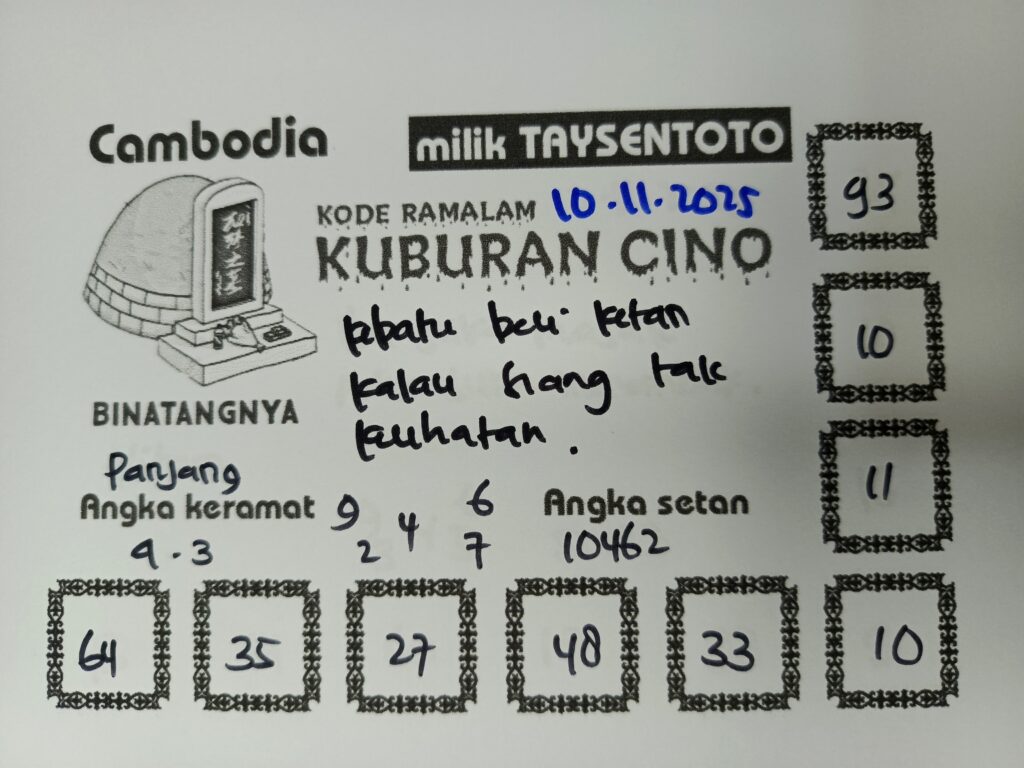 Cambodia
milik TAYSENTOTO
KODE RAMALAM 10.11.2025
KUBURAN CINO
beli ketan
kalau siang tak
BINATANGNYA
Panjang
Angka keramat
9 . 3
9 6
4
2 7
Angka setan
10462
93
10
11
64 35 27 48 33 10